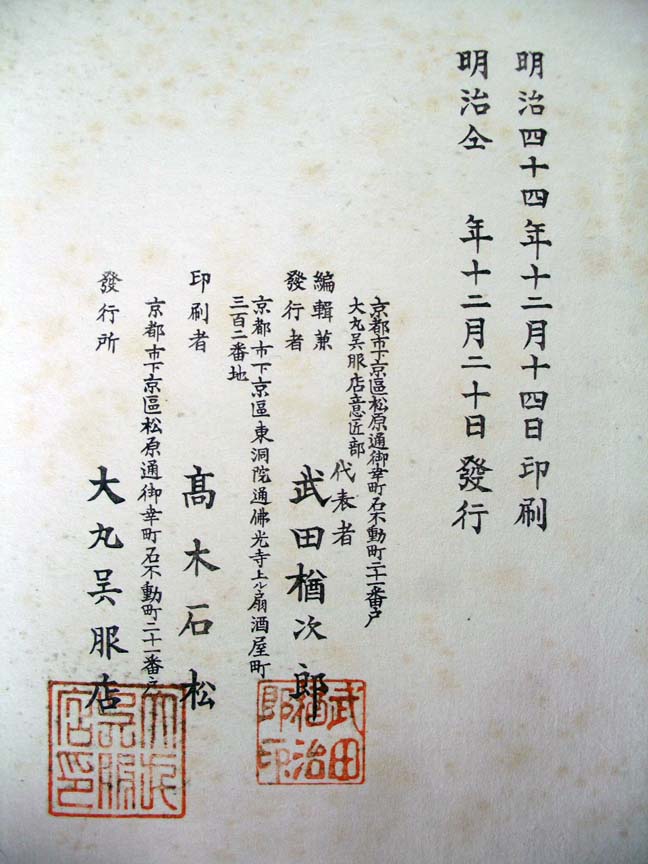 明治四十四年十二月十四日印刷
明治仝 年十二月二十日發行
京都市下京區松原通御幸町石不動町二十一番戸
大丸呉服店意匠部
代表者
編輯兼
發行者 武田楢次郎
京都市下京區東洞院通佛光寺上ル扇酒屋町
三百二番地
印刷者 髙木石松
京都市下京區松原通御幸町石不動町二十一番戸
發行所 大丸呉服店
武田
楢治
郎印
大丸
呉服
店印